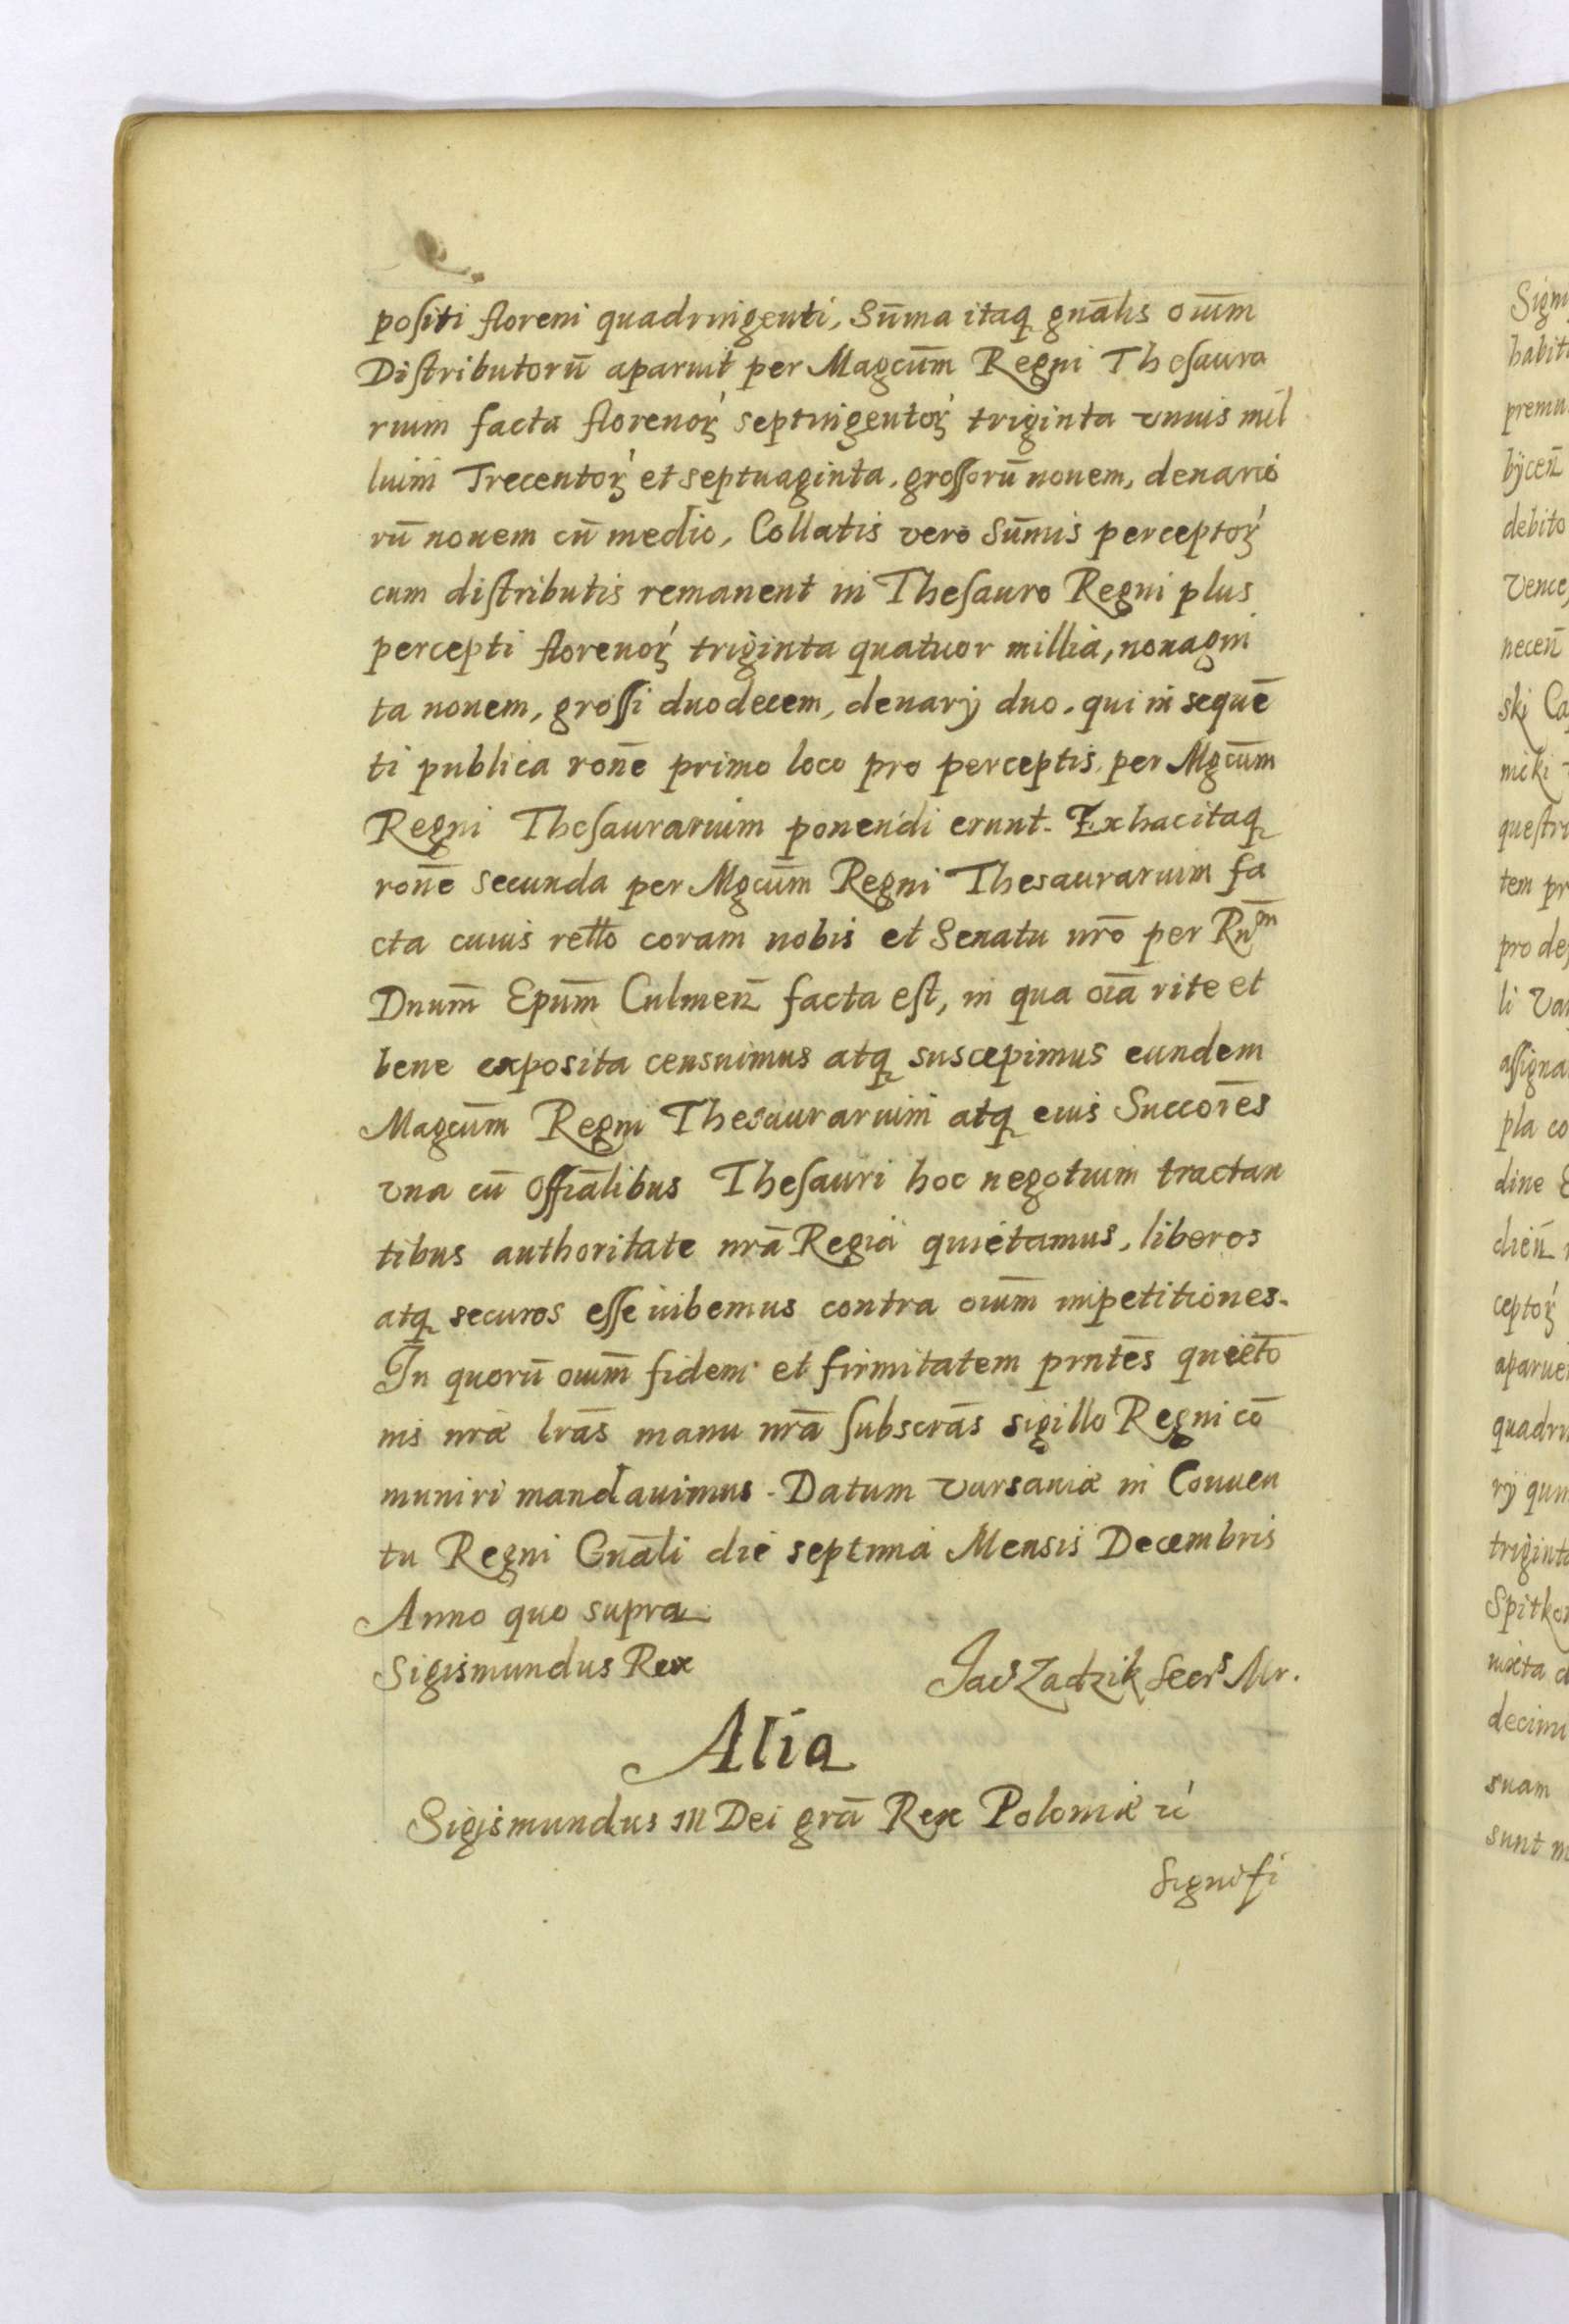 positi floreni quadringenti, Sūma itaq gnālis oium̄
Distributorū aparuit per Magcūm Regni Thesaura
rium facta florenoꝝ septingentoꝝ triginta vnius mil
lium Trecentoꝝ et septuaginta, grossorū nouem, denario
rū nouem cū medio, Collatis vero Sūmis perceptoꝝ
cum distributis remanent in Thesauro Regni plus
percepti florenoꝝ triginta quatuor millia, nonagin
ta nouem, grossi duodecem, denarij duo, qui in sequē
ti publica ronē primo loco pro perceptis per Mgcūm
Regni Thesaurarium ponendi erunt. Ex hac itaq
ronē secunda per Mgcūm Regni Thesaurarium fa
cta cuius retto coram nobis et Senatu nrō per Rnᵐ
Dnum̄ Epum̄ Culmen̄ facta est, in qua oīa rite et
bene exposita censuimus atq suscepimus eundem
Magcūm Regni Thesaurarium atq eius Succorēs
vna cū Offiālibus Thesauri hoc negotium tractan
tibus authoritate nrā Regia quietamus, liberos
atq securos esse iubemus contra oium̄ impetitiones.
In quorū oium̄ fidem et firmitatem prntēs quietō
nis nræ lrās manu nrā subscrās sigillo Regni cō
muniri mandauimus. Datum Varsauiæ in Conuen
tu Regni Gnāli die septima Mensis Decembris
Anno quo supra
Sigismundus Rex Jacˢ Zadzik Secrˢ Mr.
Alia
Sigismundus III Dei grā Rex Poloniæ ꝛć
Signifi
Signi
habit
debito
ski Ca
tem pr
pro de
li Va
assigna
pla co
dine
ceptoꝝ
triginta
decimi
suam
sunt